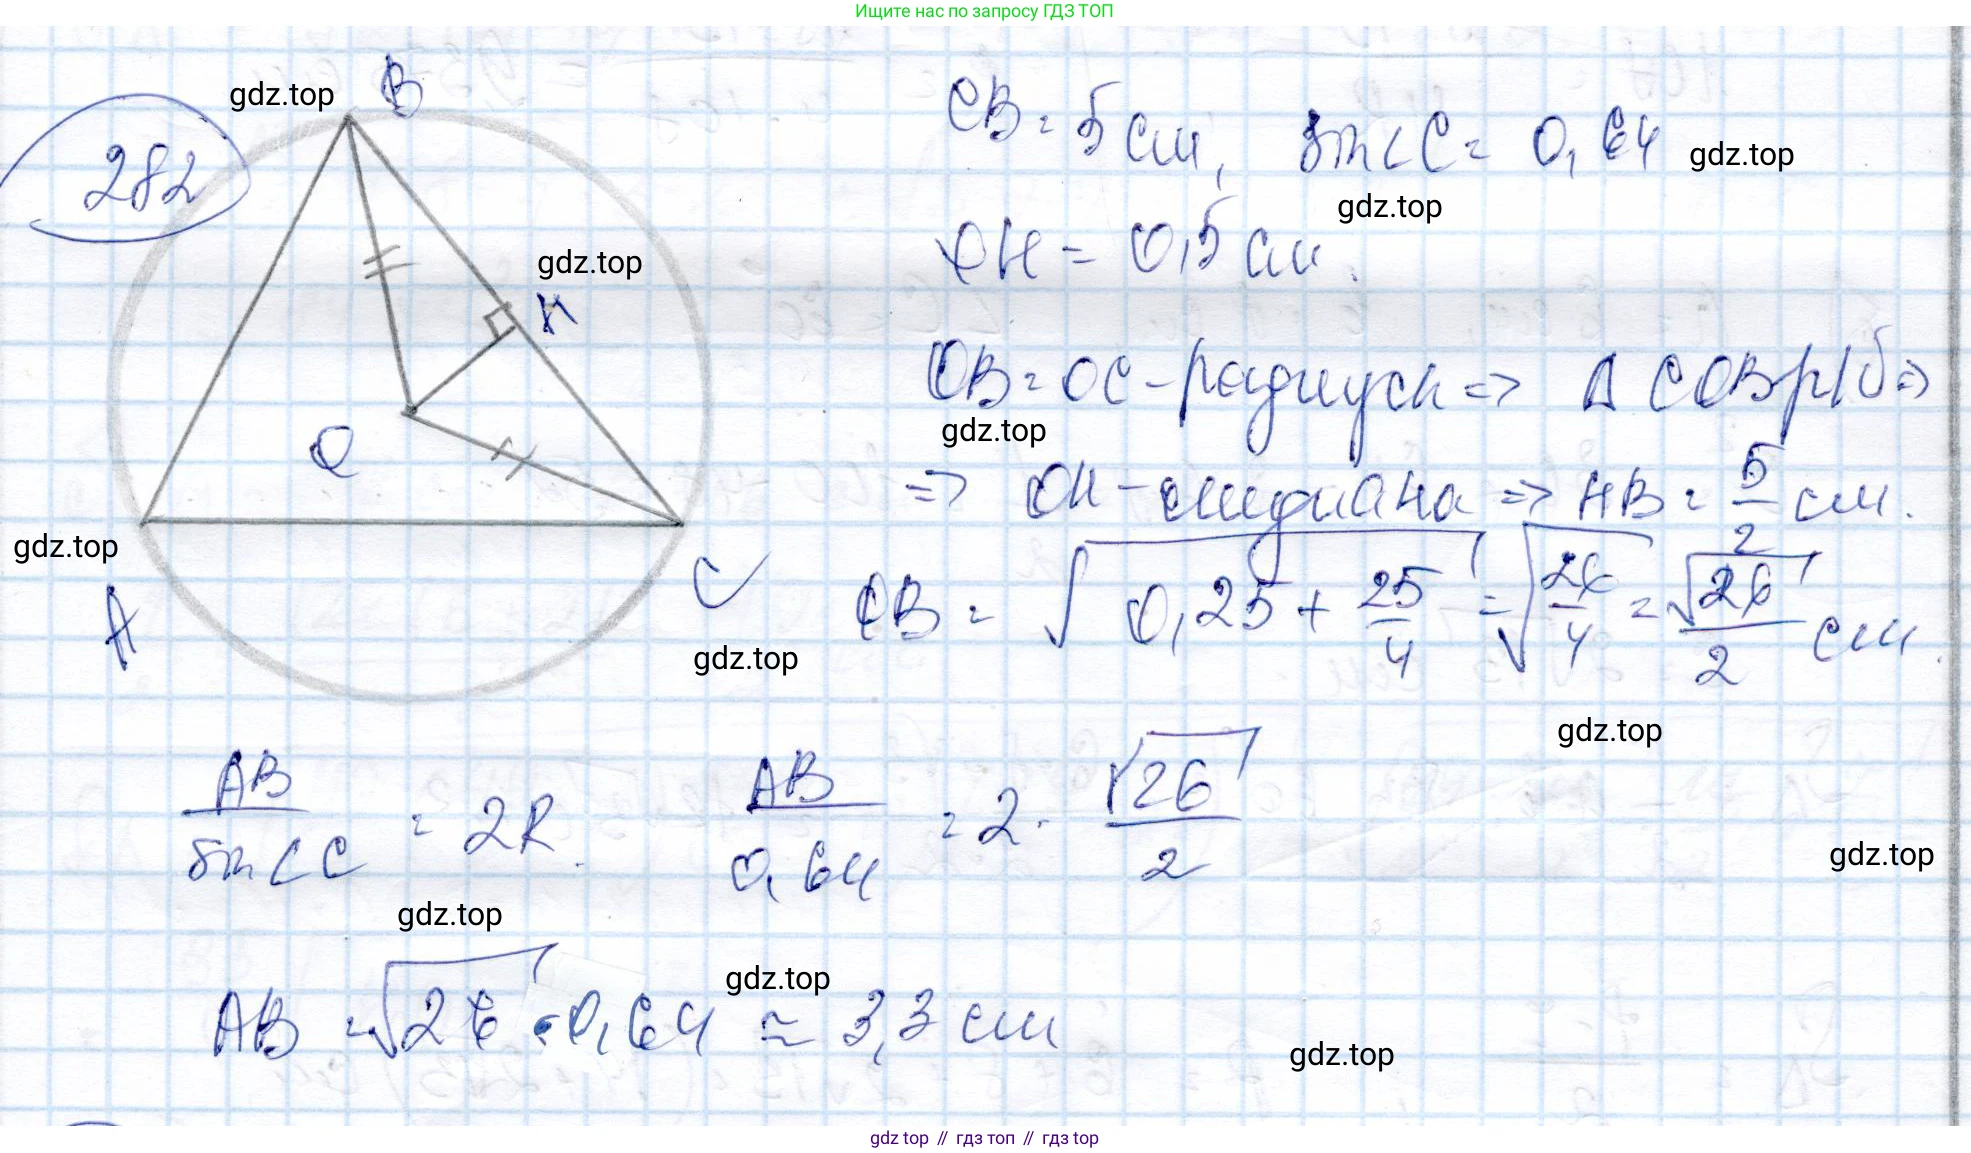 Ищите нас по запросу ГДЗ ТОП
282
gdz.top
B
CB = 5 см, sin∠C = 0,64
gdz.top
gdz.top
OH = 0,5 см.
gdz.top
H
OB = OC - радиусы => Δ COB р/б =>
gdz.top
O
=> OH - медиана => HB = 5/2 см.
gdz.top
A
C
gdz.top
OB = √(0,25 + 25/4) = √(26/4) = √26/2 см.
gdz.top
AB/sin∠C = 2R. AB/0,64 = 2 · √26/2
gdz.top
gdz.top
gdz.top
AB = √26 · 0,64 ≈ 3,3 см
gdz.top
gdz top // гдз топ // гдз top